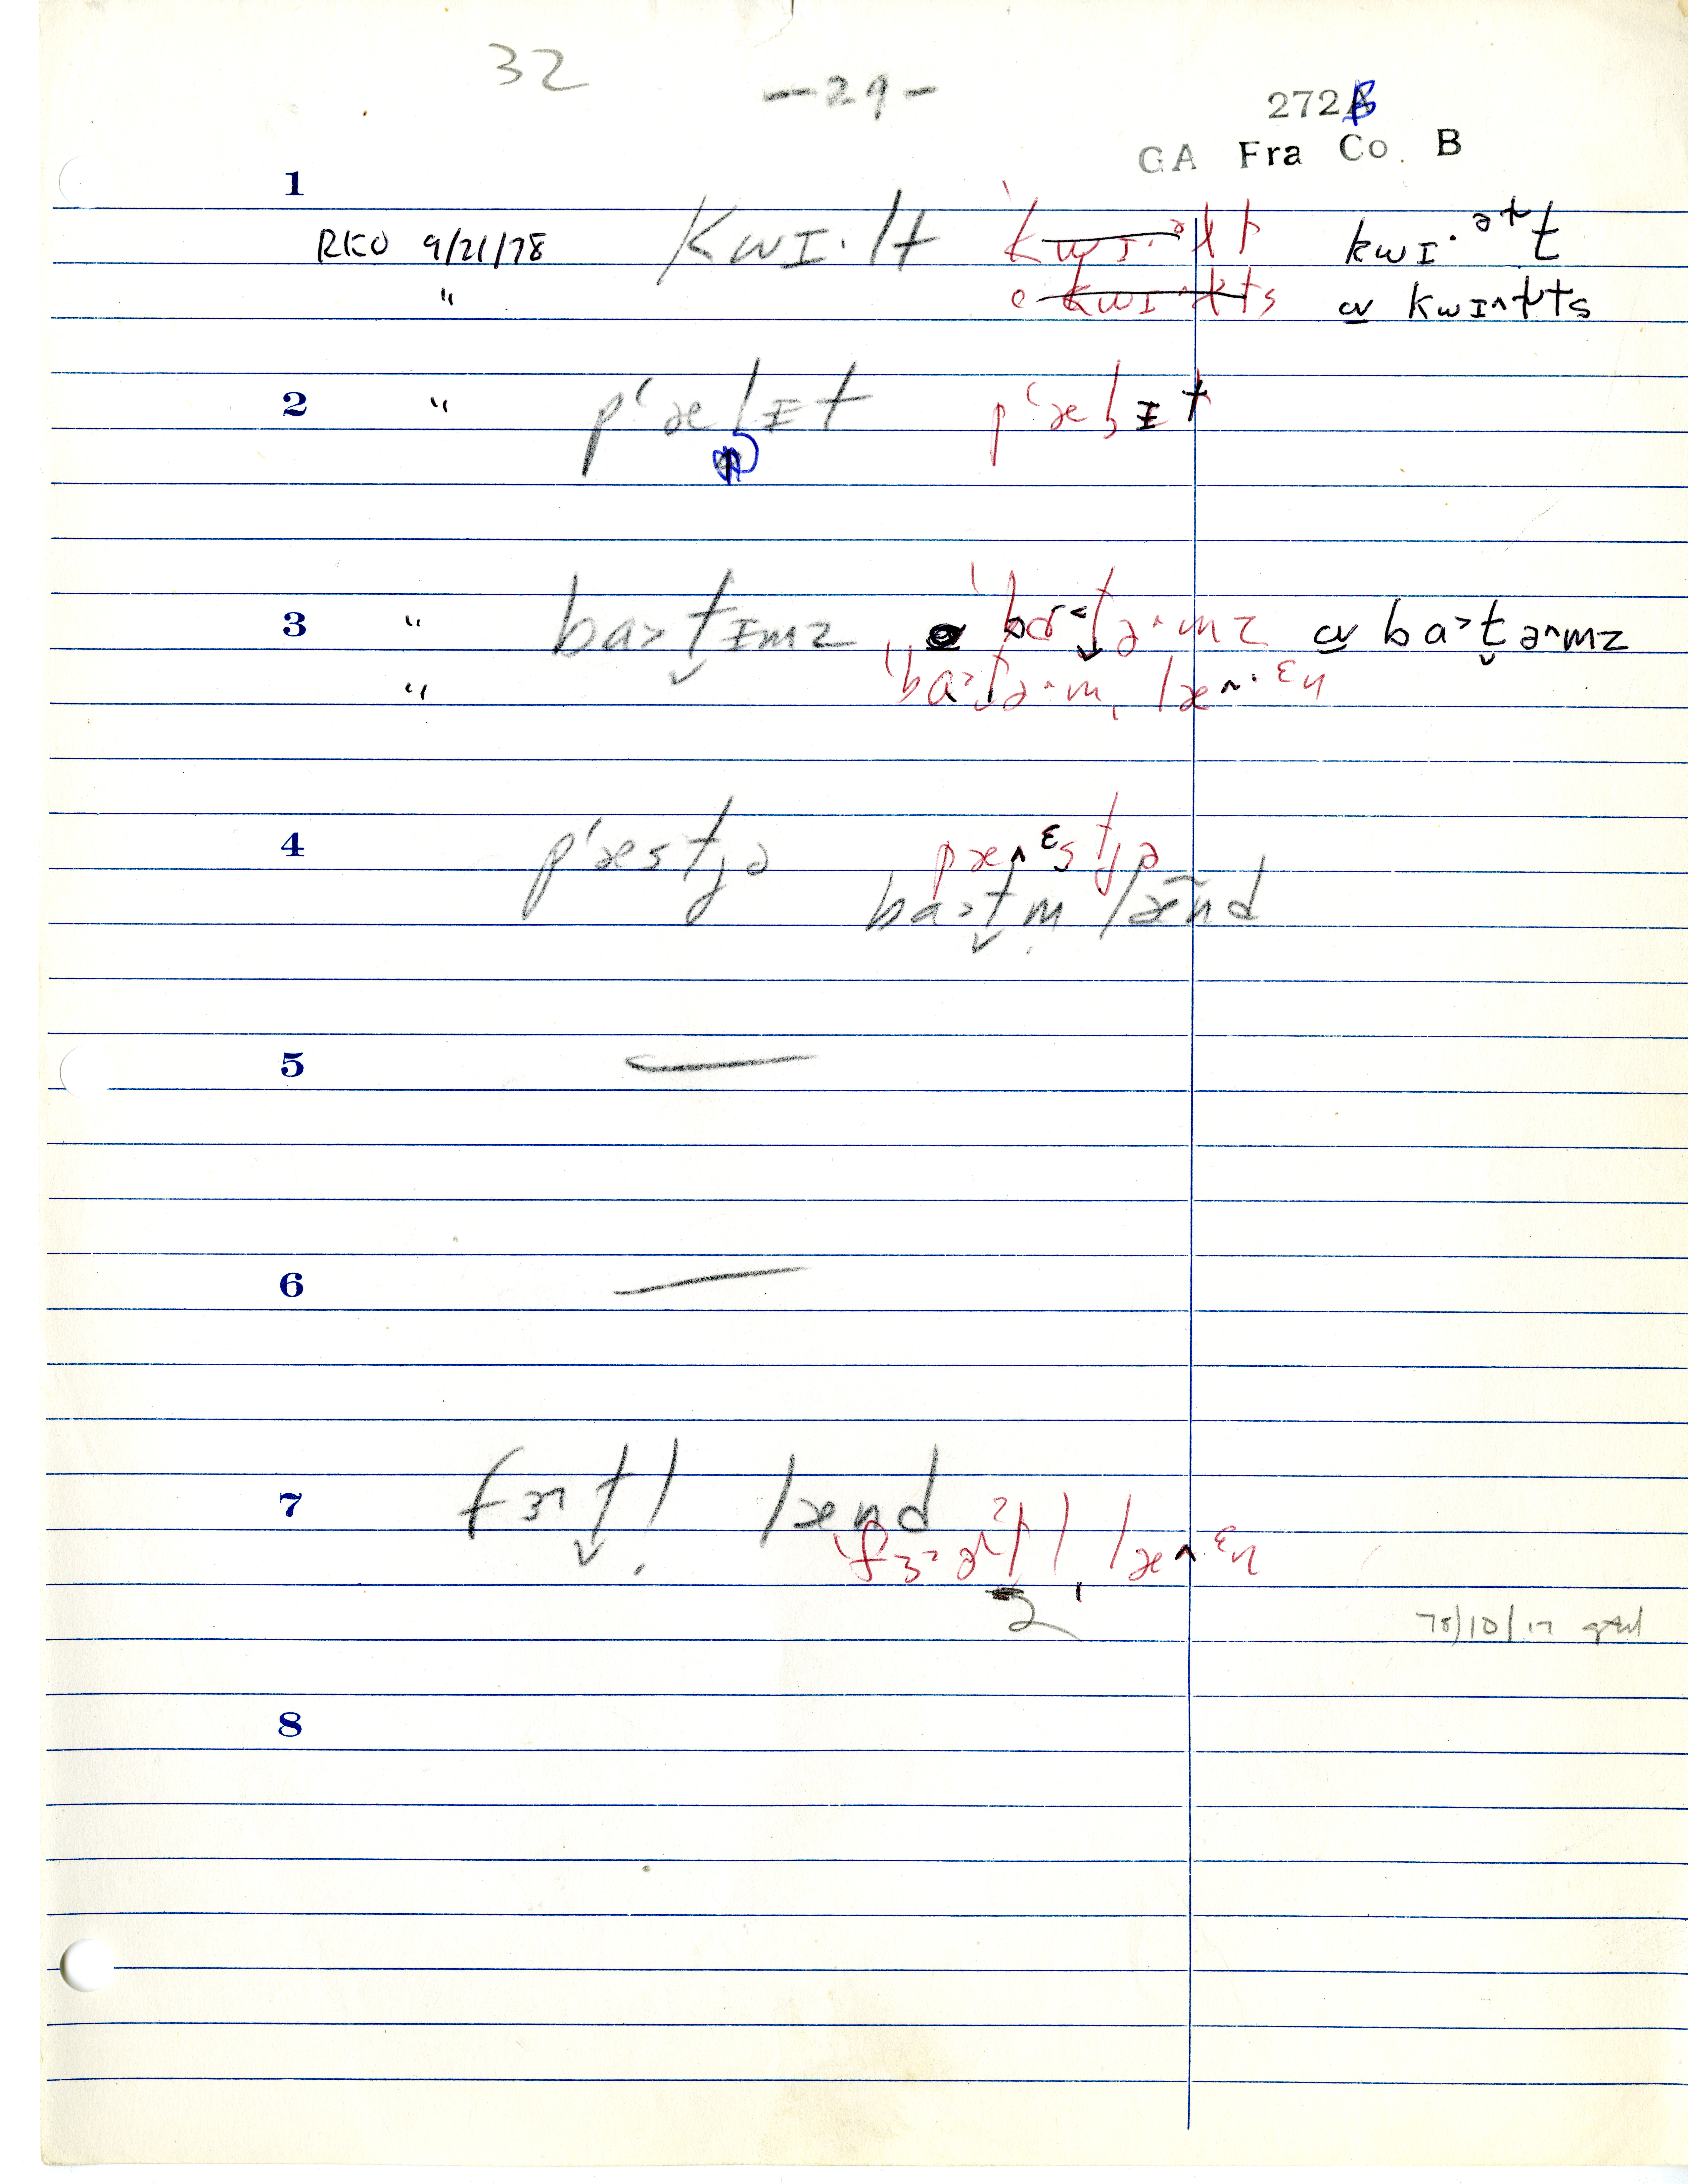 32 -29- 272B
GA Fra Co. B
1
RKO 9/21/78 kwɪ·lt kwɪ·ᵊɫt kwɪ·ᵊɫt
" kwɪ^ɫts ɑ kwɪ^ɫts
2 " pʻælɪt pʻælɪt
3 " ba>t̬ɪmz ˈbɑ<t̬ə^mz ɑ ba>t̬ə^mz
" ˈba>t̬ə^m ˌlæ^·ᵋn
4 pʻæstʃə pæ^ᵋstʃə
ba>t̬m̩ læ̃nd
5 —
6 —
7 fɝt̬l̩ lænd
ˌlæ^·ᵋn
2
78/10/17
8